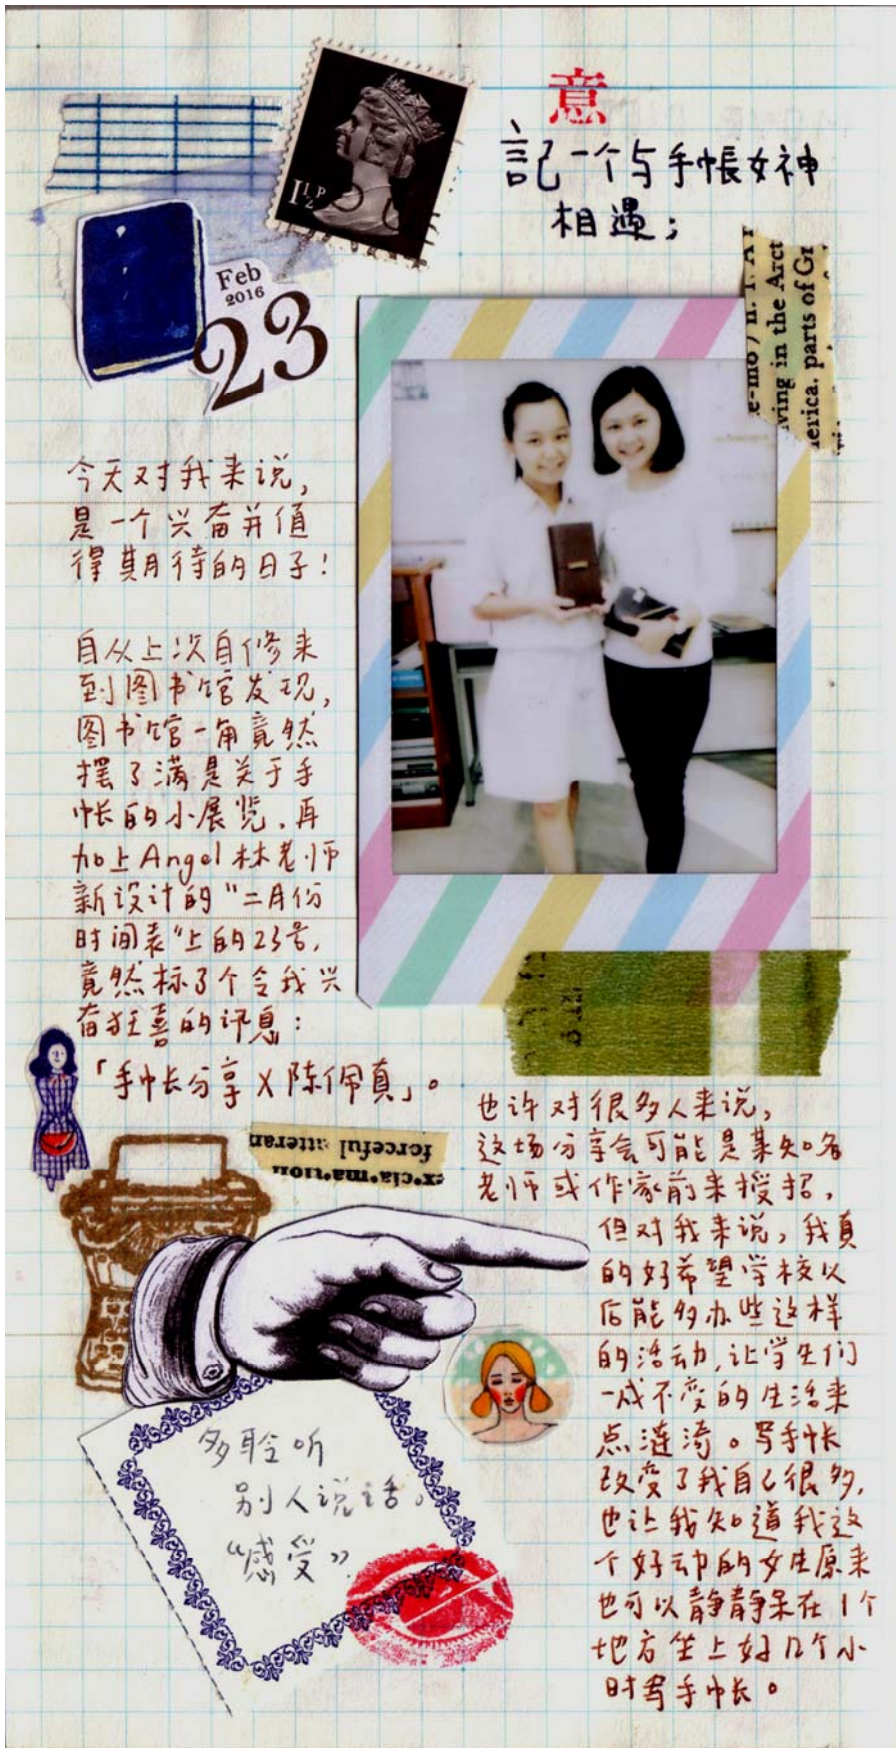 意
記一个与手帳女神
相遇；
1½P
Feb
2016
23
e-mo / n. 1. A
ving in the Arct
erica. parts of Gr
今天对我来说，
是一个兴奋并值
得期待的日子！
自从上次自修来
到图书馆发现，
图书馆一角竟然
摆了满是关于手
帐的小展览，再
加上Angel林老师
新设计的“二月份
时间表”上的23号，
竟然标了个令我兴
奋狂喜的讯息：
「手帐分享X陈佩真」。
ex•cla•ma•tion
forceful utteran
也许对很多人来说，
这场分享会可能是某知名
老师或作家前来授招，
但对我来说，我真
的好希望学校以
后能多办些这样
的活动，让学生们
一成不变的生活来
点涟漪。写手帐
改变了我自己很多，
也让我知道我这
个好动的女生原来
也可以静静呆在1个
地方坐上好几个小
时写手帐。
多聆听
别人说话。
“感受”